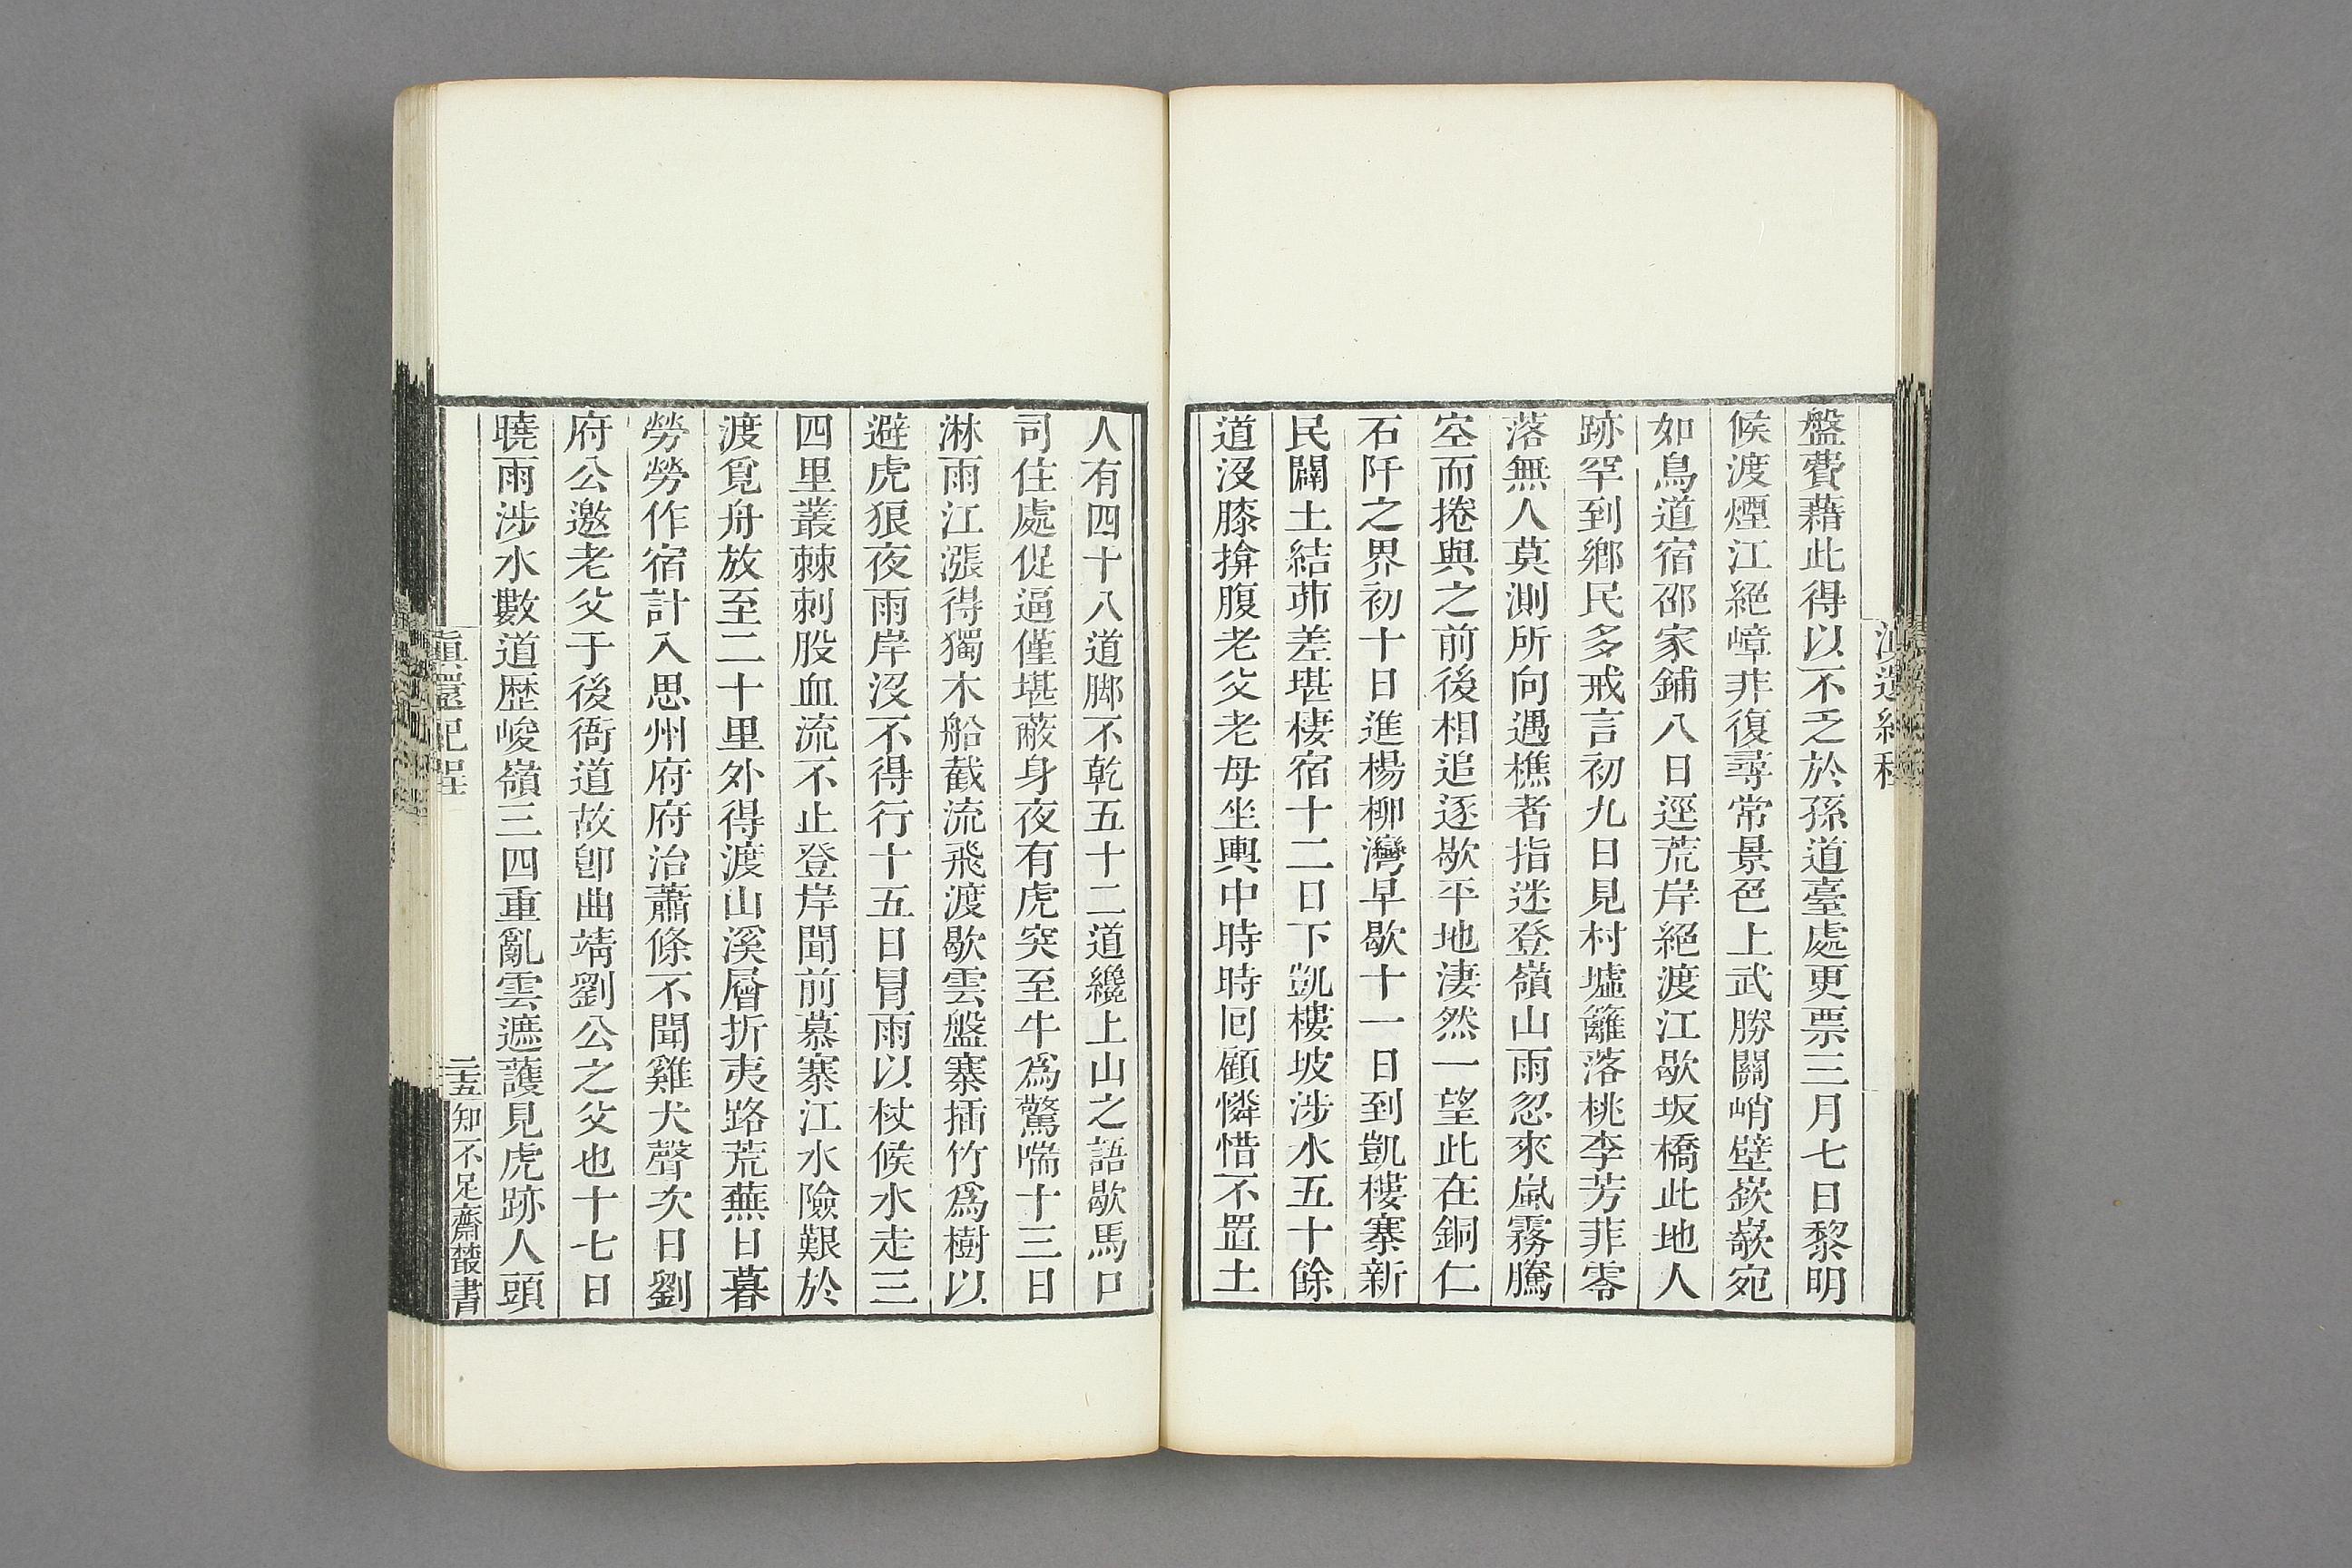 滇還紀程
盤費藉此得以不乏於孫道臺處更票三月七日黎明
候渡煙江絕嶂非復尋常景色上武勝關峭壁嶔嶔宛
如鳥道宿邵家鋪八日逕荒岸絕渡江歇坂橋此地人
跡罕到鄉民多戒言初九日見村墟籬落桃李芳菲零
落無人莫測所向遇樵者指迷登嶺山雨忽來嵐霧騰
空而捲與之前後相追逐歇平地淒然一望此在銅仁
石阡之界初十日進楊柳灣早歇十一日到凱樓寨新
民闢土結茆差堪棲宿十二日下凱樓坡涉水五十餘
道沒膝揜腹老父老母坐輿中時時回顧憐惜不置土
人有四十八道脚不乾五十二道纔上山之語歇馬口
司住處促逼僅堪蔽身夜有虎突至牛爲驚喘十三日
淋雨江漲得獨木船截流飛渡歇雲盤寨插竹爲樹以
避虎狼夜雨岸沒不得行十五日冒雨以杖候水走三
四里叢棘刺股血流不止登岸聞前慕寨江水險艱於
渡覓舟放至二十里外得渡山溪層折夷路荒蕪日暮
勞勞作宿計入思州府府治蕭條不聞雞犬聲次日劉
府公邀老父于後衙道故卽曲靖劉公之父也十七日
曉雨涉水數道歷峻嶺三四重亂雲遮護見虎跡人頭
滇還紀程
二十五
知不足齋叢書